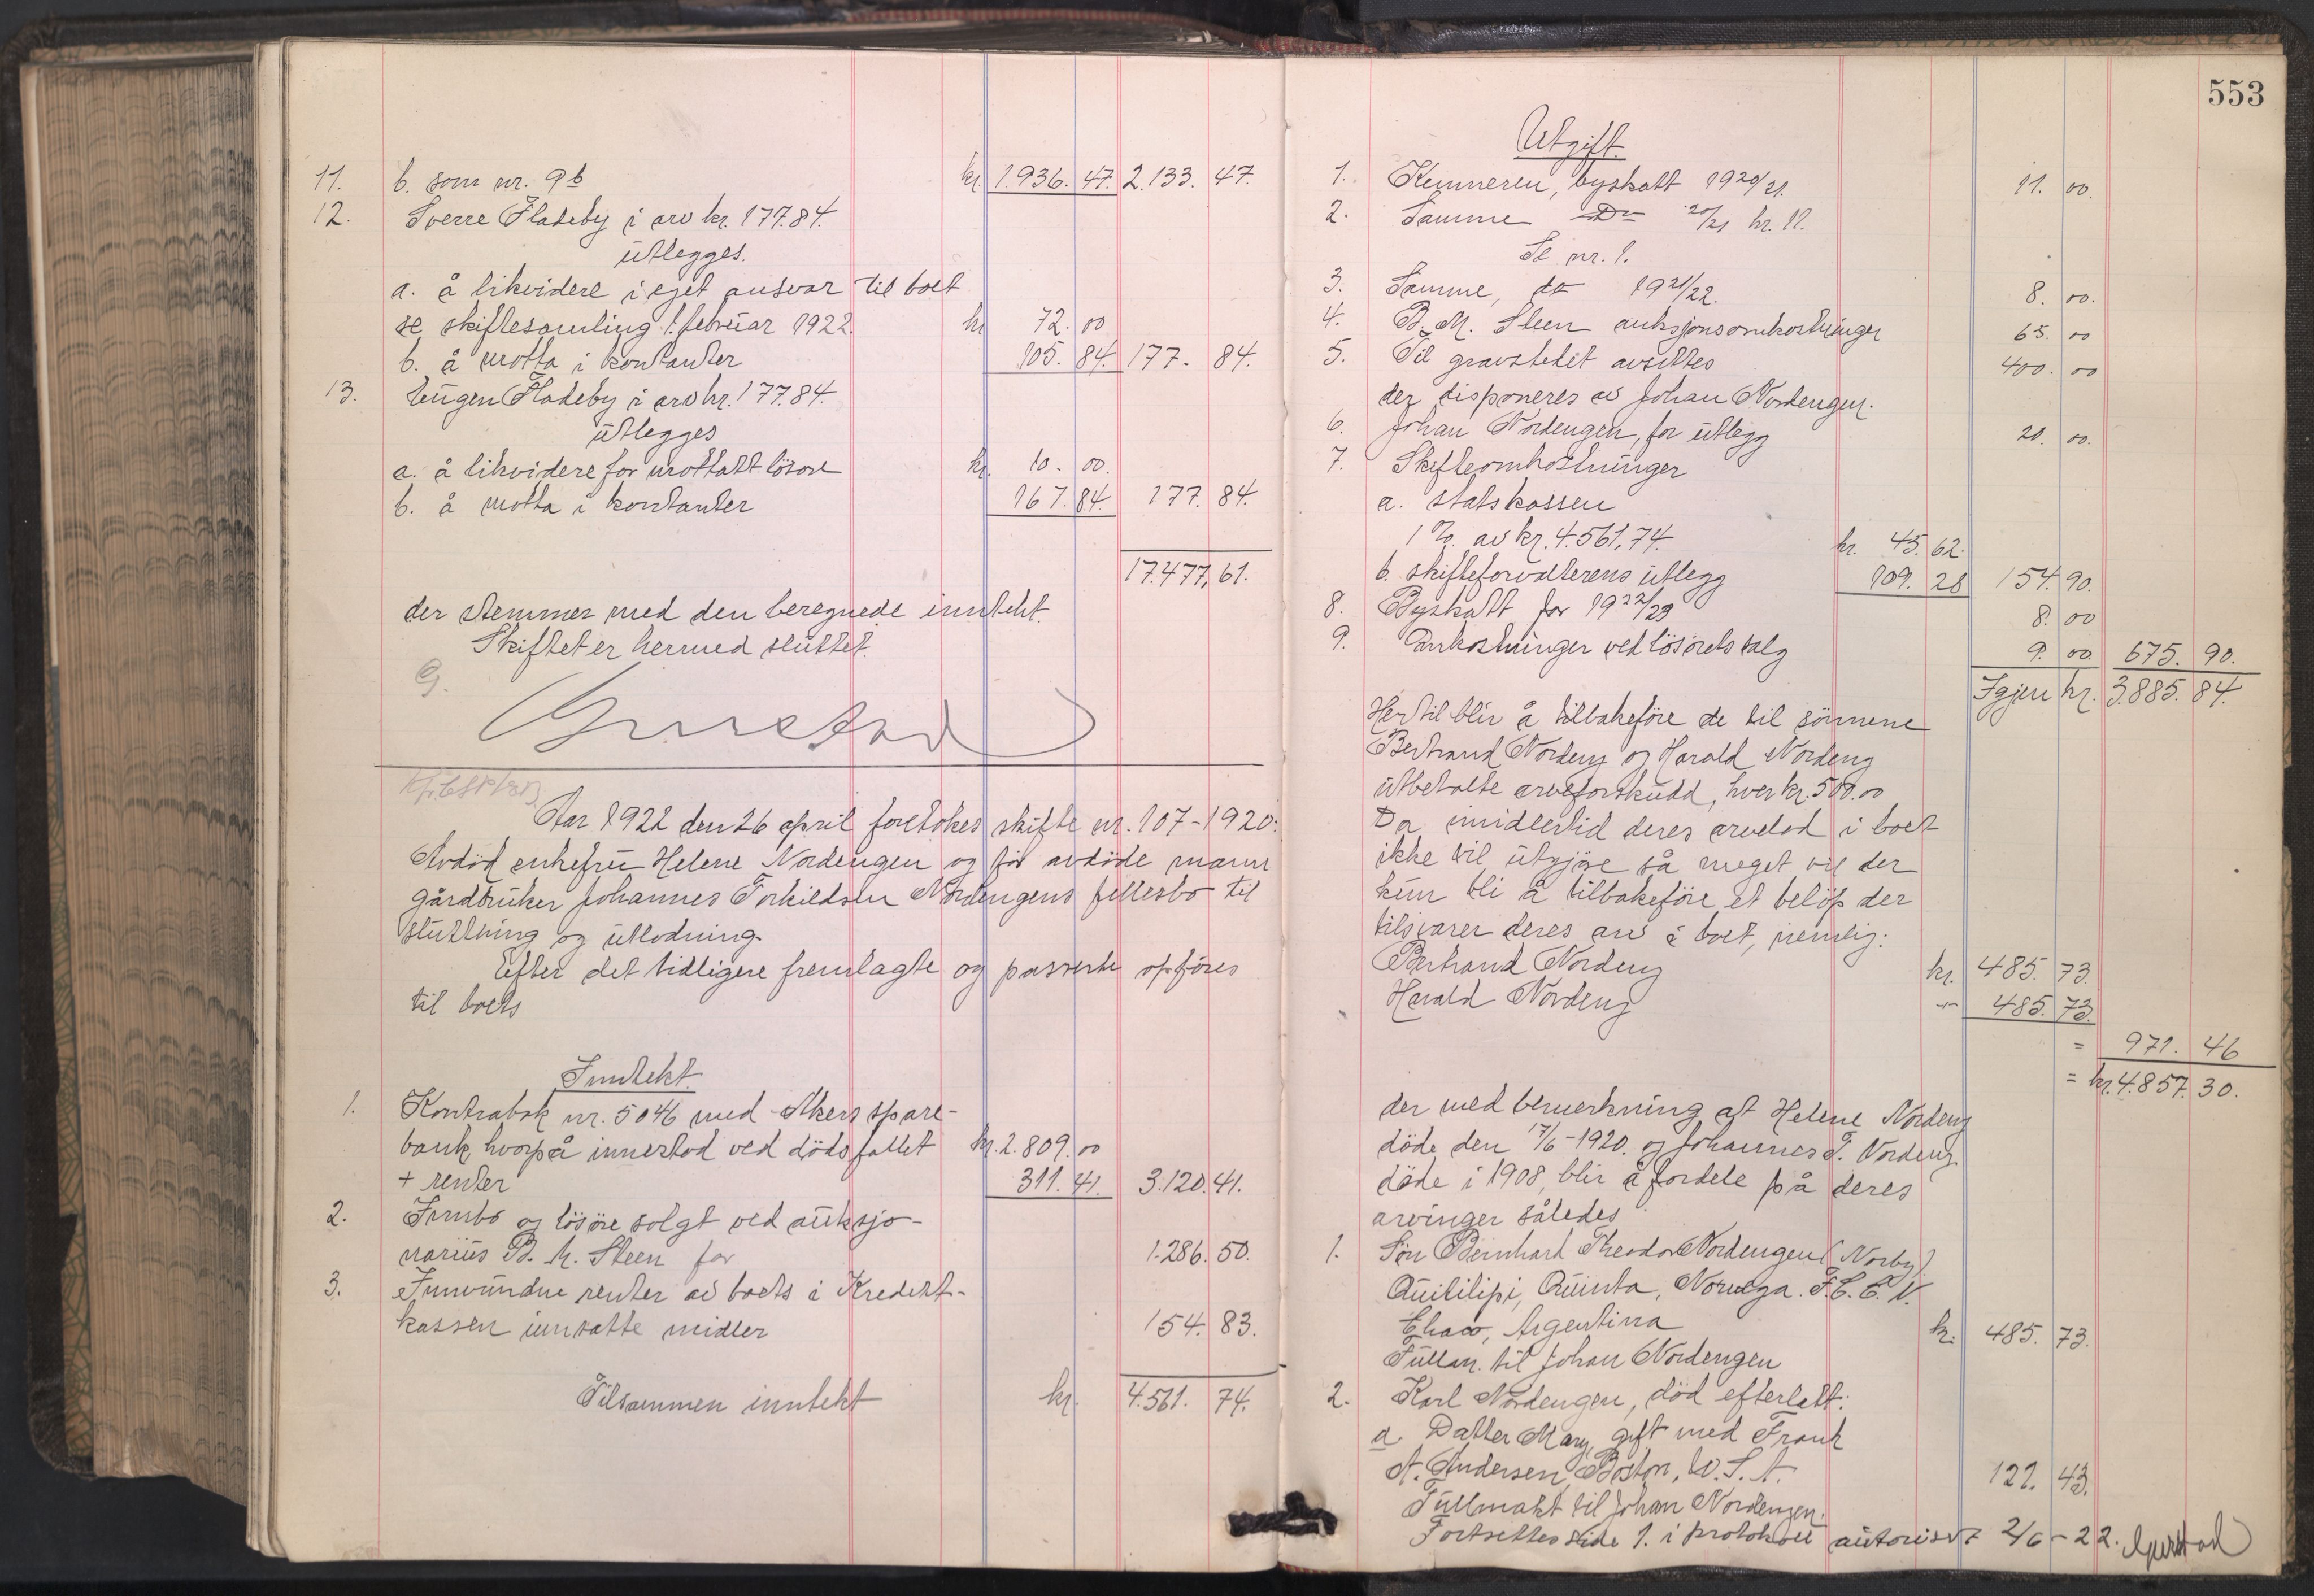 11. b. som nr. 9b kr. 1.936. 47. 2.133. 47.
12. Sverre Fladeby i arv kr. 177.84.
utlegges.
a. å likvidere i eget ansvar til boet
se skiftesamling 1. februar 1922. kr 72. 00
b. å motta i kontanter 105. 84. 177. 84.
13. Eugen Fladeby i arv kr. 177.84.
utlegges
a. å likvidere for mottatt lösöre kr. 10. 00.
b. å motta i kontanter 167. 84. 177. 84.
17.477, 61.
der stemmer med den beregnede inntekt.
Skiftet er hermed sluttet.
Aar 1922 den 26 april foretokes skifte nr. 107-1920:
Avdöd enkefru Helene Nordengen og för avdöde mann
gårdbruker Johannes Torkildsen Nordengens fellesbo til
slutning og utlodning.
Efter det tidligere fremlagte og passerte opföres
til boets
Inntekt.
1. Kontrabok nr. 5046 med Akers spare-
bank, hvorpå innestod ved dödsfallet kr. 2.809. 00
+ renter 311. 41. 3.120. 41.
2. Innbo og lösöre solgt ved auksjo-
narius B. M. Steen for 1.286. 50.
3. Innvundne renter av boets i Kredit-
kassen innsatte midler 154. 83.
Tilsammen inntekt kr. 4.561. 74.
553
Utgift.
1. Kemneren, byskatt 1920/21. 11. 00.
2. Samme Do 20/21 kr. 11.
Se nr. 1.
3. Samme, do 1921/22. 8. 00.
4. B. M. Steen auksjonsomkostninger 65. 00
5. Til gravstedet avsettes 400. 00
der disponeres av Johan Nordengen.
6. Johan Nordengen, for utlegg 20. 00.
7. Skifteomkostninger
a. statskassen
1 % av kr. 4.561,74. kr. 45. 62.
b. skifteforvalterens utlegg 109. 28 154. 90.
8. Byskatt for 1922/23 8. 00
9. Omkostninger ved lösörets salg 9. 00 675. 90.
Igjen kr. 3.885. 84.
Hertil blir å tilbakeföre de til sönnene
Bertrand Nordeng og Harald Nordeng
utbetalte arveforskudd, hver kr. 500.00
Da imidlertid deres arvelod i boet
ikke vil utgjöre så meget vil der
kun bli å tilbakeföre et belöp der
tilsvarer deres arv i boet, nemlig:
Bertrand Nordeng kr. 485. 73.
Harald Nordeng - 485. 73.
= 971. 46
= kr. 4.857. 30.
der med bemerkning at Helene Nordeng
döde den 17/6-1920. og Johannes T. Nordeng
döde i 1908, blir å fordele på deres
arvinger således
1. Sön Bernhard Theodor Nordengen (Norby)
Quitilipi, Quinta, Noruega. F.C.C.N.
Chaco, Argentina kr. 485. 73.
Fullm. til Johan Nordengen
2. Karl Nordengen, död efterlatt:
a. Datter Mary, gift med Frank
A. Andersen, Boston, U.S.A. 121. 43.
Fullmakt til Johan Nordengen.
Fortsettes side 1. i protokoll autorisert 2/6-22.